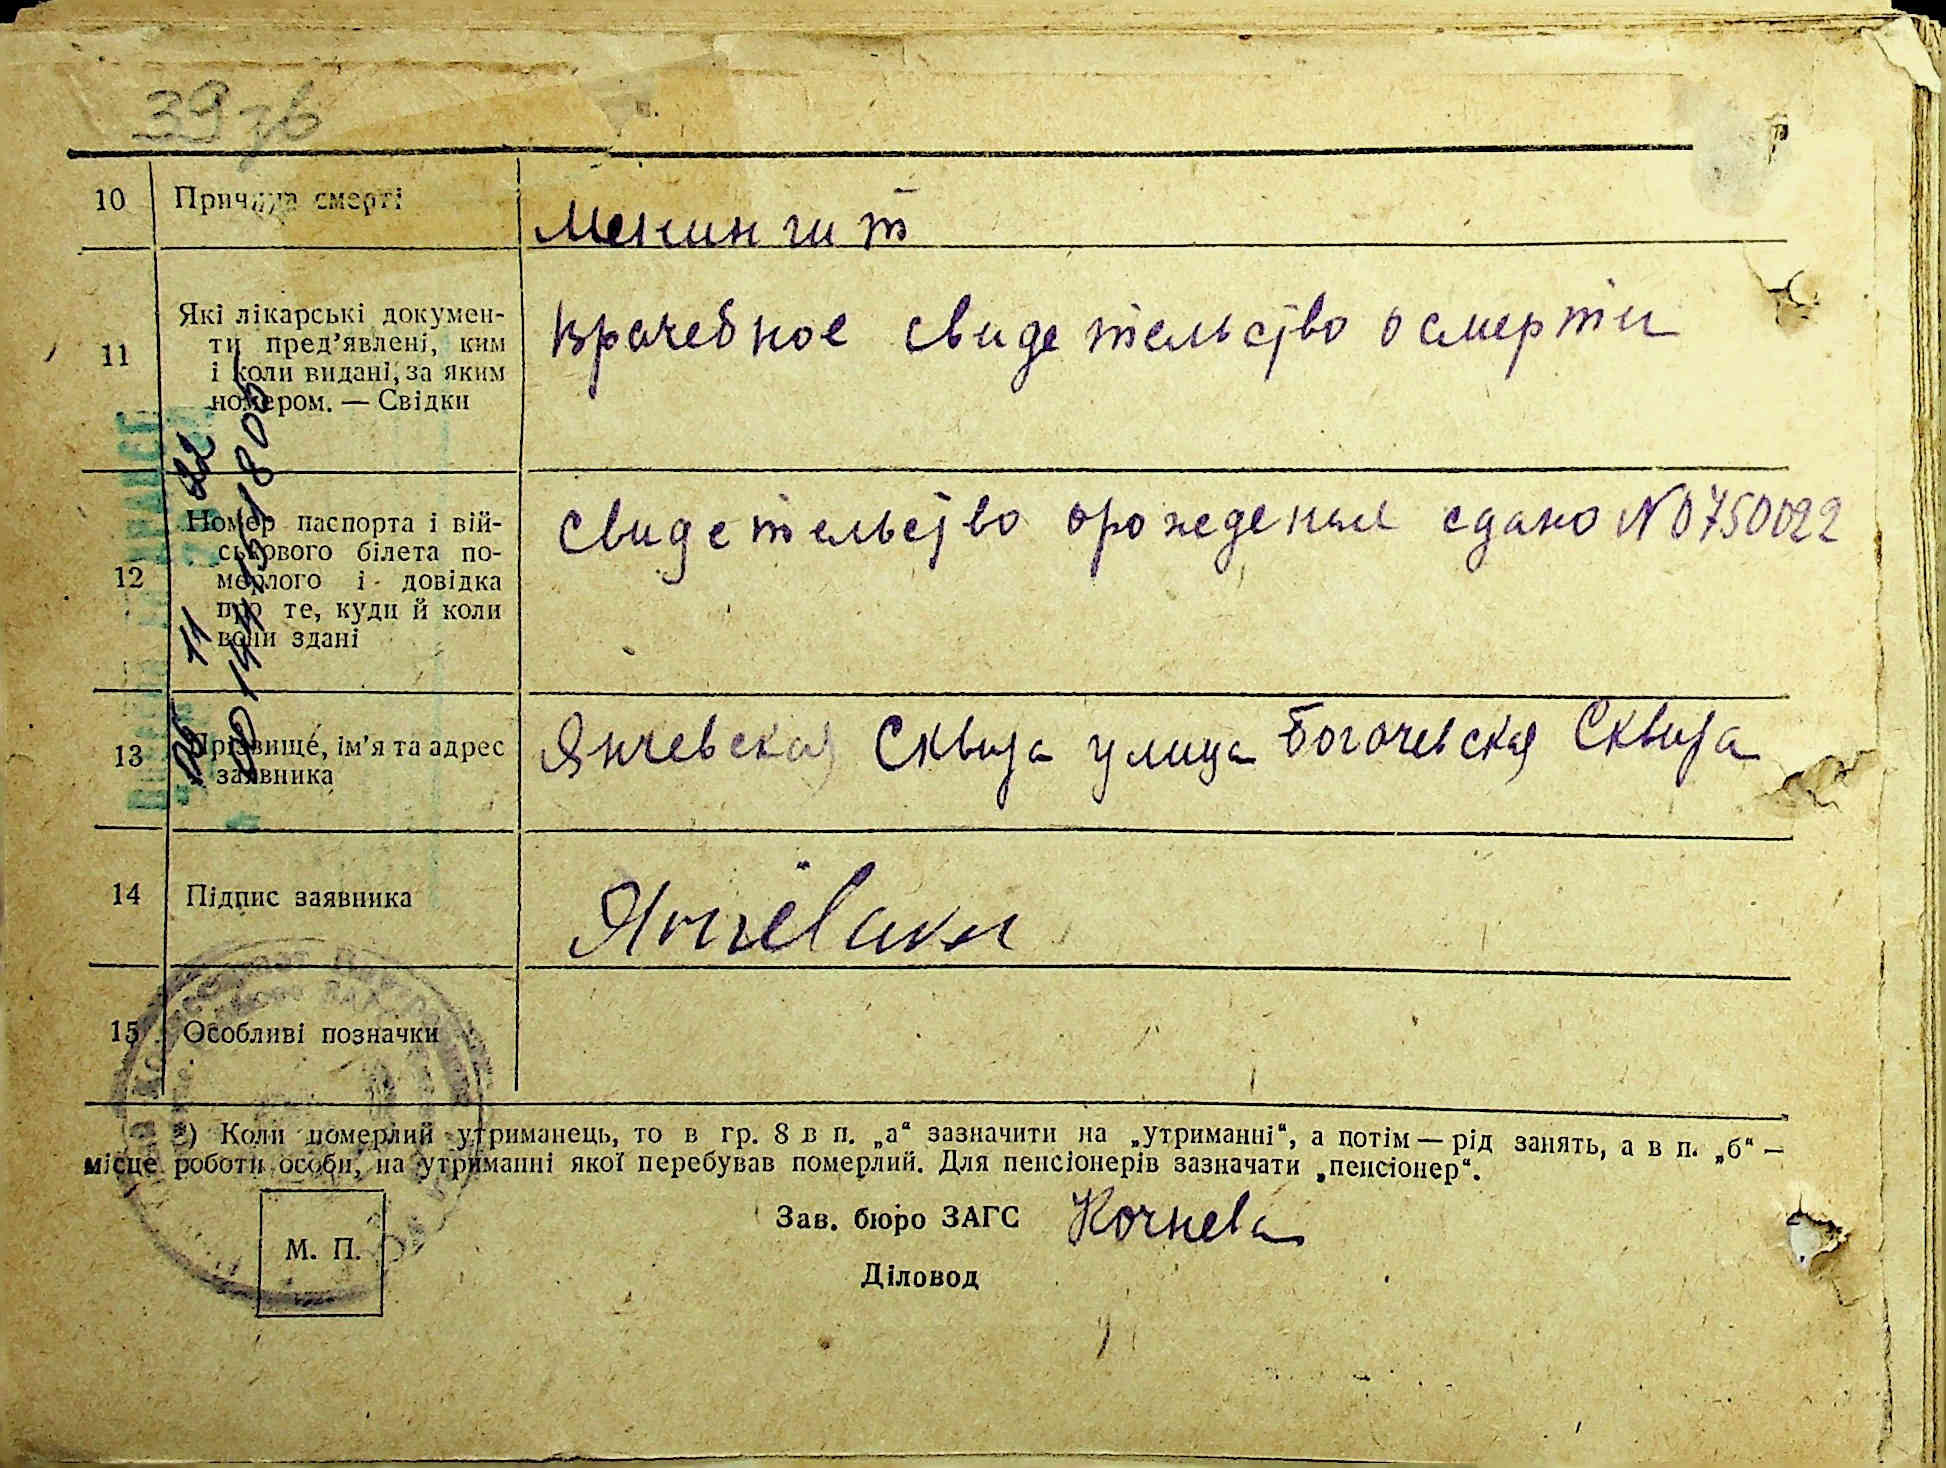 39 зв
10 Причина смерті
Менингит
Які лікарські докумен-
ти пред'явлені, ким
11 і коли видані, за яким
номером. — Свідки
врачебное свидетельство о смерти
Номер паспорта і вій-
ськового білета по-
12 мерлого і довідка
про те, куди й коли
вони здані
свидетельство орождении сдано N0750022
13 Прізвище, ім'я та адрес
заявника
Янчевская Сквира улица Богачевская Сквира
14 Підпис заявника
15 Особливі позначки
*) Коли померлий утриманець, то в гр. 8 в п. „а“ зазначити на „утриманні“, а потім — рід занять, а в п. „б“ —
місце роботи особи, на утриманні якої перебував померлий. Для пенсіонерів зазначати „пенсіонер“.
Зав. бюро ЗАГС Кочнева
М. П.
Діловод